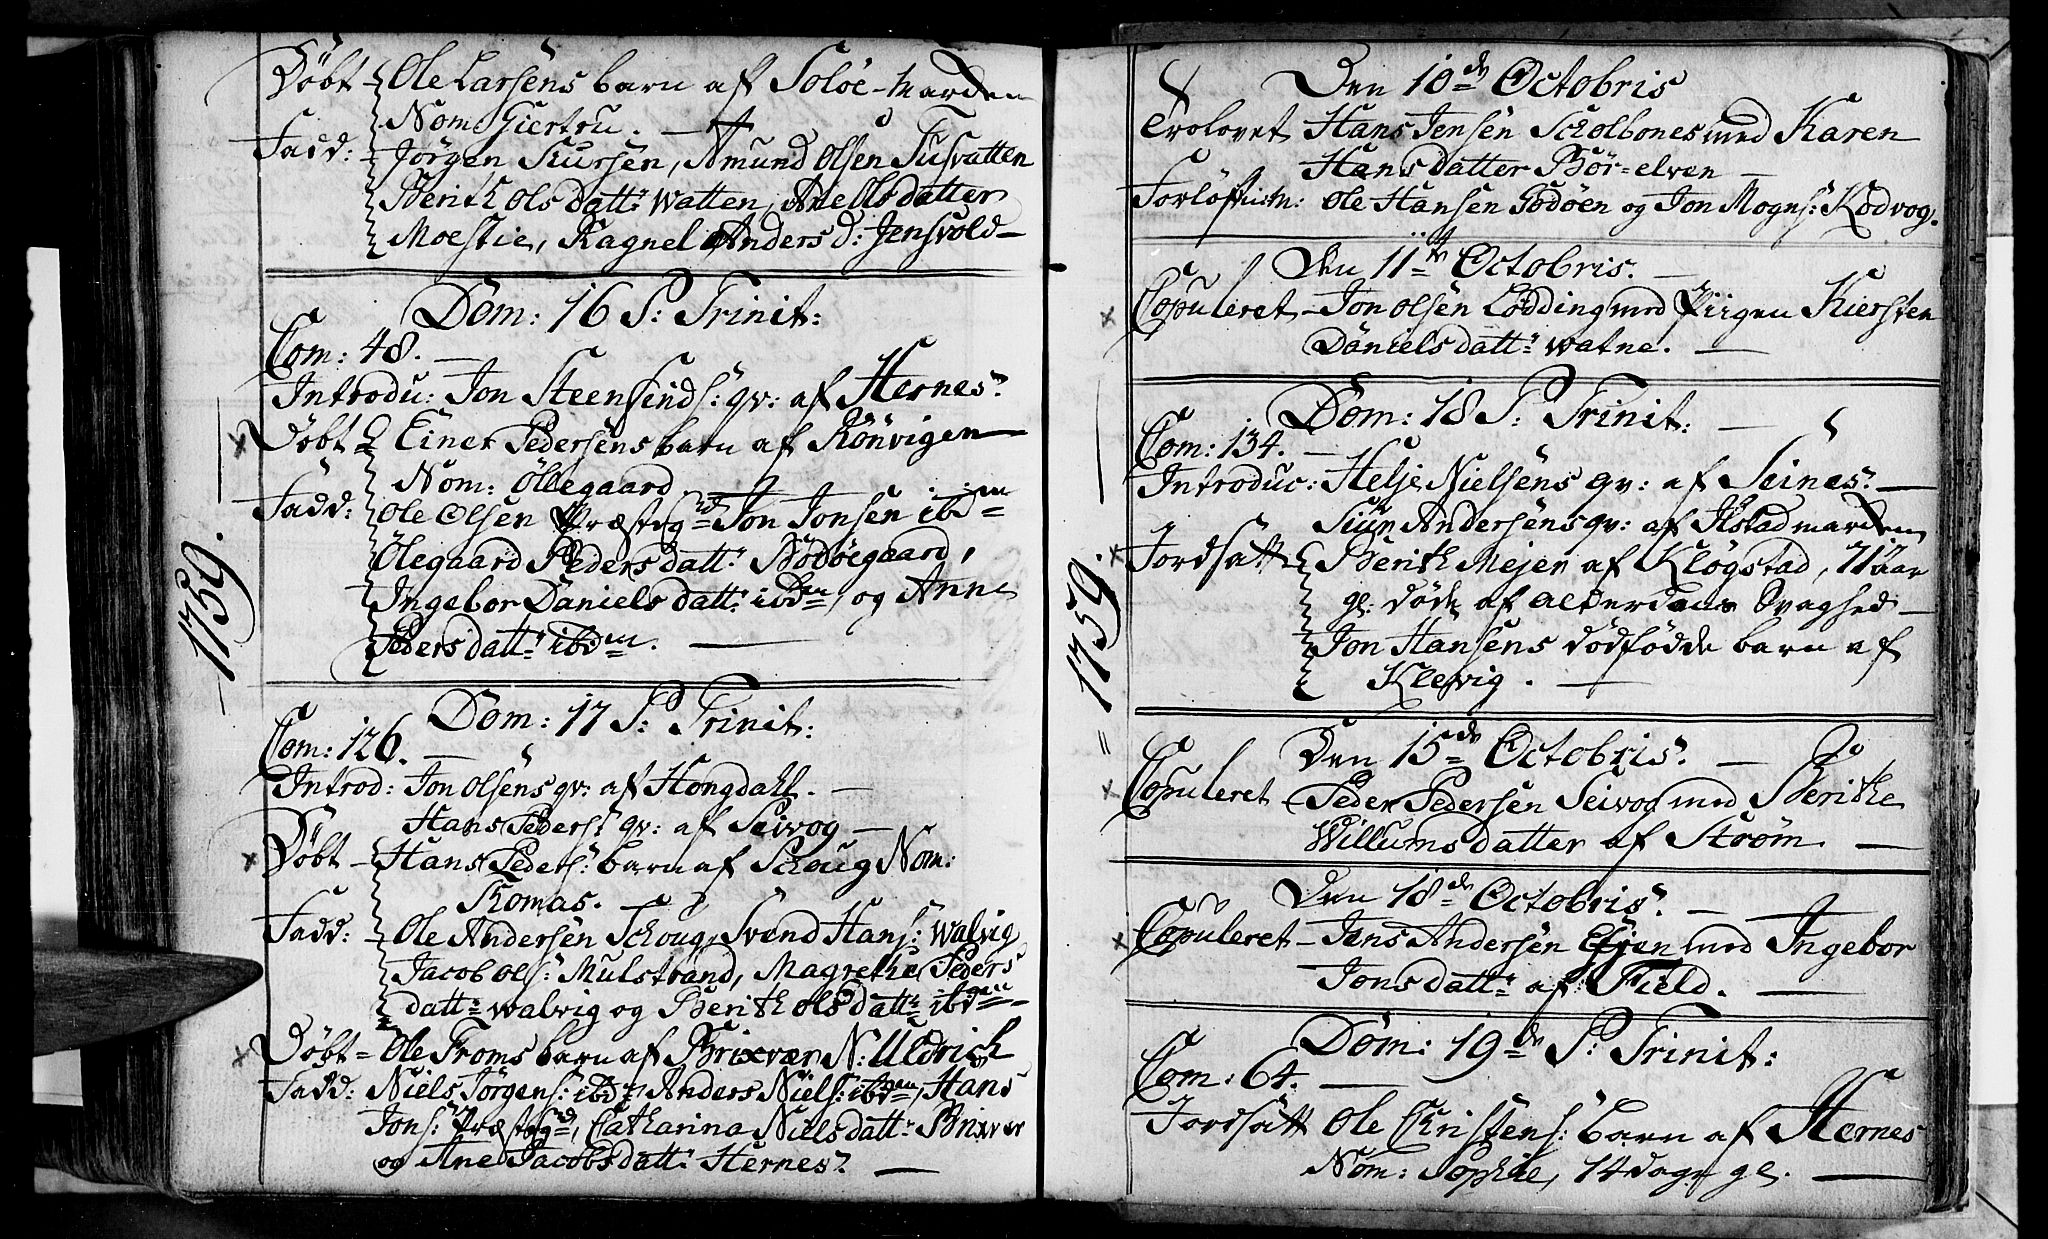 Døbt - Ole Larsens barn af Soløe-Marchen
Nom: Giertru.
Fadd: Jørgen Sursen, Amund Olsen Tusvatten
Berith Olsdatt: Watten, Anellsdatter
Moestie, Ragnel Anders d: Jensvold
Dom: 16 P: Trinit:
Com: 48.
Introdu: Jon Steensinds: qv: af Hernes.
1759.
Døbt Einer Pedersens barn af Rønvigen
Nom: Ollegaard
Fadd: Ole Olsen Præsteg: Jon Jonsen ibdem
Olegaard Pedersdatt: Bodøegaard,
Ingebor Danielsdatt: ibdem, og Anne
Pedersdatt: ibdem.
Dom: 17 P: Trinit:
Com: 126.
Introd: Jon Olsens qv: af Hongdall.
Hans Peders: qv: af Seivog
Døbt - Hans Peders: barn af Schoug Nom:
Thomas.
Fadd: Ole Andersen Schoug, Svend Hans: Walvig
Jacob Ols: Mulstrand, Magrethe Peders
datt: Walvig og Berith Olsdatt: ibdem
Døbt = Ole Froms barn af Brixvær N: Uldrich
Fadd: Niels Jørgens: ibd: Anders Niels: ibdem, Hans
Jons: Præsteg:, Catharina Nielsdatt: Brixvær
og Ane Jacobsdatt: Hernes.
Den 10de Octobris
Trolovet Hans Jensen Scholbones med Karen
Hansdatter Bør-elven
Forløftism: Ole Hansen Godøen og Jon Mogns: Kodvog.
Den 11te Octobris.
Copuleret - Jon Olsen Lødding med Piigen Kiersten
Danielsdatt: Watne.
Dom: 18 P: Trinit:
Com: 134.
Introduc: Helje Nielsens qv: af Seines.
Siur Andersens qv: af Ilstadmarchen
1759.
Jordsatt Berith Mejer af Kløgstad, 71 aar
gl: døde af Alderdoms Svaghed
Jon Hansens dødfødde barn af
Klevig.
Den 15de Octobris.
Copuleret - Peder Pedersen Seivog med Berithe
Willumsdatter af Strøm.
Den 18de Octobris.
Copuleret - Jens Andersen Ejen med Ingebor
Jonsdatt: af Field.
Dom: 19de P: Trinit:
Com: 64.
Jordsatt Ole Christens: barn af Hernes
Nom: Sophie, 14 dage gl.